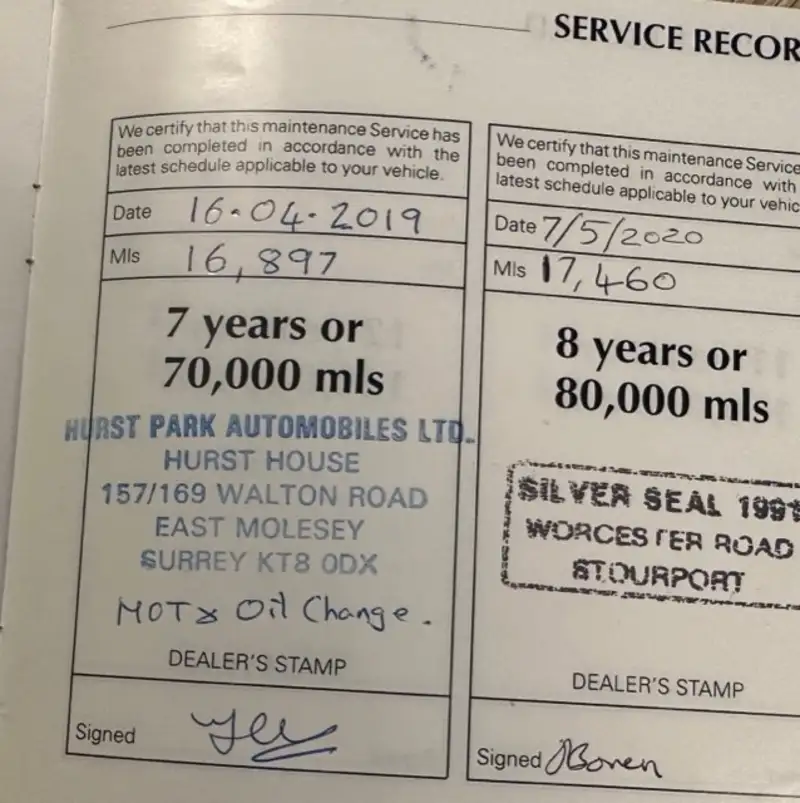 SERVICE RECOR
We certify that this maintenance Service has
been completed in accordance with the
latest schedule applicable to your vehicle.
Date 16-04-2019
Mls 16,897
7 years or
70,000 mls
HURST PARK AUTOMOBILES LTD.
HURST HOUSE
157/169 WALTON ROAD
EAST MOLESEY
SURREY KT8 0DX
MOT & Oil Change.
DEALER'S STAMP
Signed
We certify that this maintenance Service
been completed in accordance with
latest schedule applicable to your vehic
Date 7/5/2020
Mls 17,460
8 years or
80,000 mls
SILVER SEAL 1991
WORCESTER ROAD
STOURPORT
DEALER'S STAMP
Signed